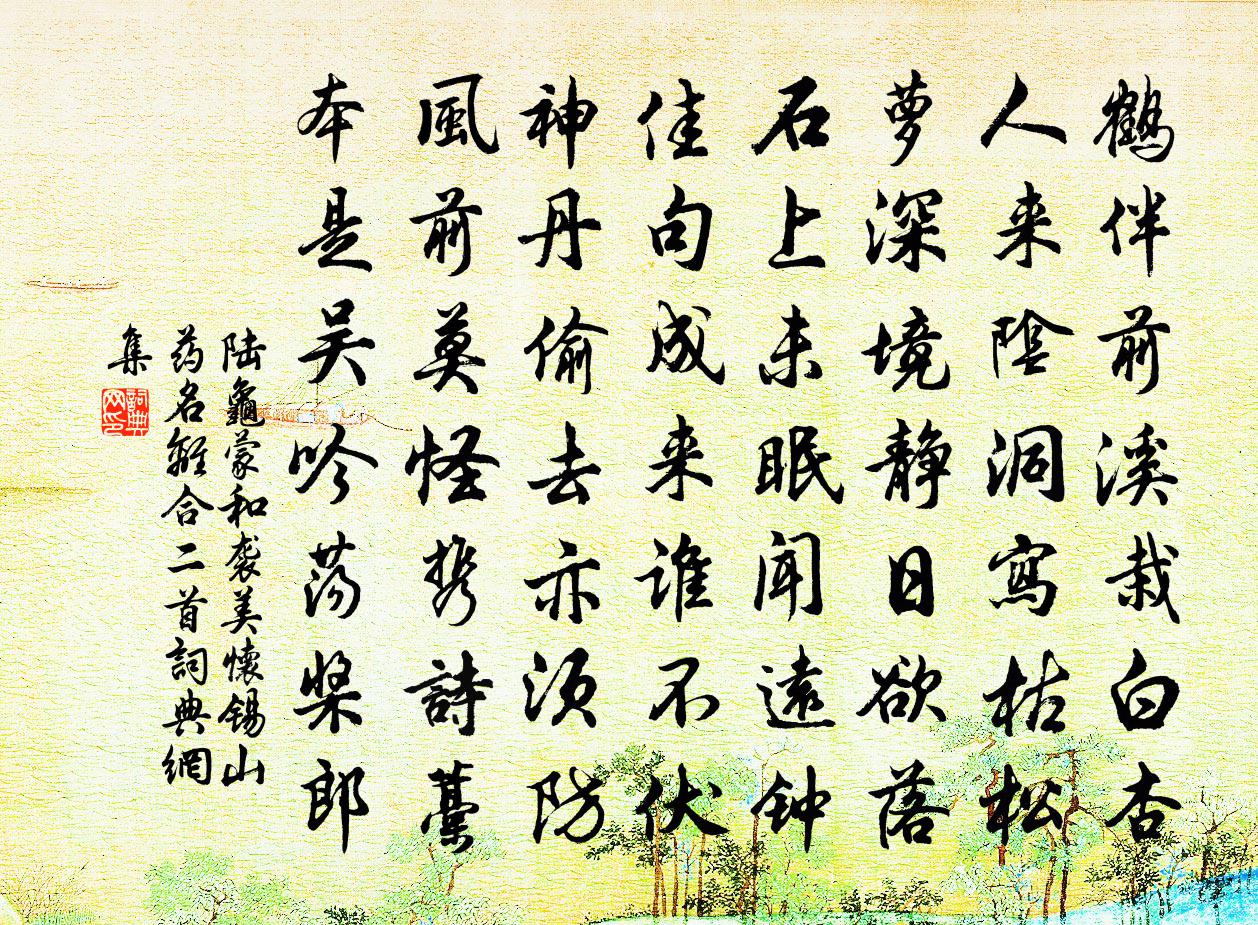 鹤伴前溪栽白杏
人来阴洞寫枯松
萝深境静日欲落
石上未眠闻遠钟
佳句成来谁不伏
神丹偷去亦须防
風前莫怪携詩藁
本是吴吟荡桨郎
陆龜蒙和袭美懷锡山
药名離合二首詞典網
集
詞典
网印